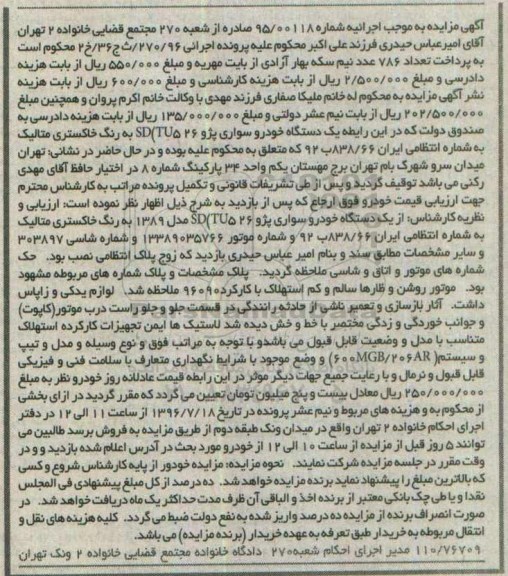 آگهی مزایده به موجب اجرائیه شماره ۹۵/۰۰۱۱۸ صادره از شعبه ۲۷۰ مجتمع قضایی خانواده ۲ تهران
آقای امیرعباس حیدری فرزند علی اکبر محکوم علیه پرونده اجرائی ۲۷۰/۹۶/ث ج/۳۶خ۲ محکوم است
به پرداخت تعداد ۷۸۶ عدد نیم سکه بهار آزادی از بابت مهریه و مبلغ ۵۵۰/۰۰۰ ریال از بابت هزینه
دادرسی و مبلغ ۲/۵۰۰/۰۰۰ ریال از بابت هزینه کارشناسی و مبلغ ۶۰۰/۰۰۰ ریال از بابت هزینه
نشر آگهی مزایده به محکوم له خانم ملیکا صفاری فرزند مهدی با وکالت خانم اکرم پروان و همچنین مبلغ
۲۰۲/۵۰۰/۰۰۰ ریال از بابت نیم عشر دولتی و مبلغ ۱۳۵/۰۰۰/۰۰۰ ریال از بابت هزینه دادرسی به
صندوق دولت که در این رابطه یک دستگاه خودرو سواری پژو ۲۶ SD(TU۵ به رنگ خاکستری متالیک
به شماره انتظامی ایران ۸۳۸/۶۶ب ۹۲ که متعلق به محکوم علیه بوده و در حال حاضر در نشانی: تهران
میدان سرو شهرک بام تهران برج مهستان یکم واحد ۳۴ پارکینگ شماره ۸ در اختیار حافظ آقای مهدی
رکنی می باشد توقیف گردید و پس از طی تشریفات قانونی و تکمیل پرونده مراتب به کارشناس محترم
جهت ارزیابی قیمت خودرو فوق ارجاع که پس از بازدید به شرح ذیل اظهار نظر نموده است: ارزیابی و
نظریه کارشناس: از یک دستگاه خودرو سواری پژو ۲۶ SD(TU۵ مدل ۱۳۸۹ به رنگ خاکستری متالیک
به شماره انتظامی ایران ۸۳۸/۶۶ب ۹۲ و شماره موتور ۱۳۳۸۹۰۳۵۷۶۶ و شماره شاسی ۳۰۳۸۹۷
و سایر مشخصات مطابق سند و بنام امیر عباس حیدری بازدید که زوج پلاک انتظامی نصب بود. حک
شماره های موتور و اتاق و شاسی ملاحظه گردید. پلاک مشخصات و پلاک شماره های مربوطه مشهود
بود. موتور روشن و ظاهرا سالم و کم استهلاک با کارکرد ۹۶۰۹۰ ملاحظه شد. لوازم یدکی و زاپاس
داشت. آثار بازسازی و تعمیر ناشی از حادثه رانندگی در قسمت جلو و جلو راست درب موتور(کاپوت)
و جوانب خوردگی و زدگی مختصر با خط و خش دیده شد لاستیک ها ایمن تجهیزات کارکرده استهلاک
متناسب با مدل و وضعیت قابل قبول می باشدو با توجه به مراتب فوق و نوع وسیله و مدل و تیپ
و سیستم( ۶۰۰MGB/۲۰۶AR) و وضع موجود با شرایط نگهداری متعارف با سلامت فنی و فیزیکی
قابل قبول و نرمال و با رعایت جمیع جهات دیگر موثر در این رابطه قیمت عادلانه روز خودرو نظر به مبلغ
۲۵۰/۰۰۰/۰۰۰ ریال معادل بیست و پنج میلیون تومان تعیین می گردد که مقرر گردید در ازای بخشی
از محکوم به و هزینه های مربوط و نیم عشر پرونده در تاریخ ۱۳۹۶/۷/۱۸ از ساعت ۱۱ الی ۱۲ در دفتر
اجرای احکام خانواده ۲ تهران واقع در میدان ونک طبقه دوم از طریق مزایده به فروش برسد طالبین می
توانند ۵ روز قبل از مزایده از ساعت ۱۰ الی ۱۲ از خودرو مورد بحث در آدرس اعلام شده بازدید و و در
وقت مقرر در جلسه مزایده شرکت نمایند. نحوه مزایده: مزایده خودرو از پایه کارشناس شروع و کسی
که بالاترین مبلغ را پیشنهاد نماید برنده مزایده خواهد شد. ده درصد از کل مبلغ پیشنهادی فی المجلس
نقدا و یا طی چک بانکی معتبر از برنده اخذ و الباقی آن ظرف مدت حداکثر یک ماه دریافت خواهد شد. در
صورت انصراف برنده از مزایده ده درصد واریز شده به نفع دولت ضبط می گردد. کلیه هزینه های نقل و
انتقال مربوطه به خریدار طبق تعرفه به عهده خریدار (برنده مزایده) می باشد.
۱۱۰/۷۶۷۰۹ مدیر اجرای احکام شعبه۲۷۰ دادگاه خانواده مجتمع قضایی خانواده ۲ ونک تهران